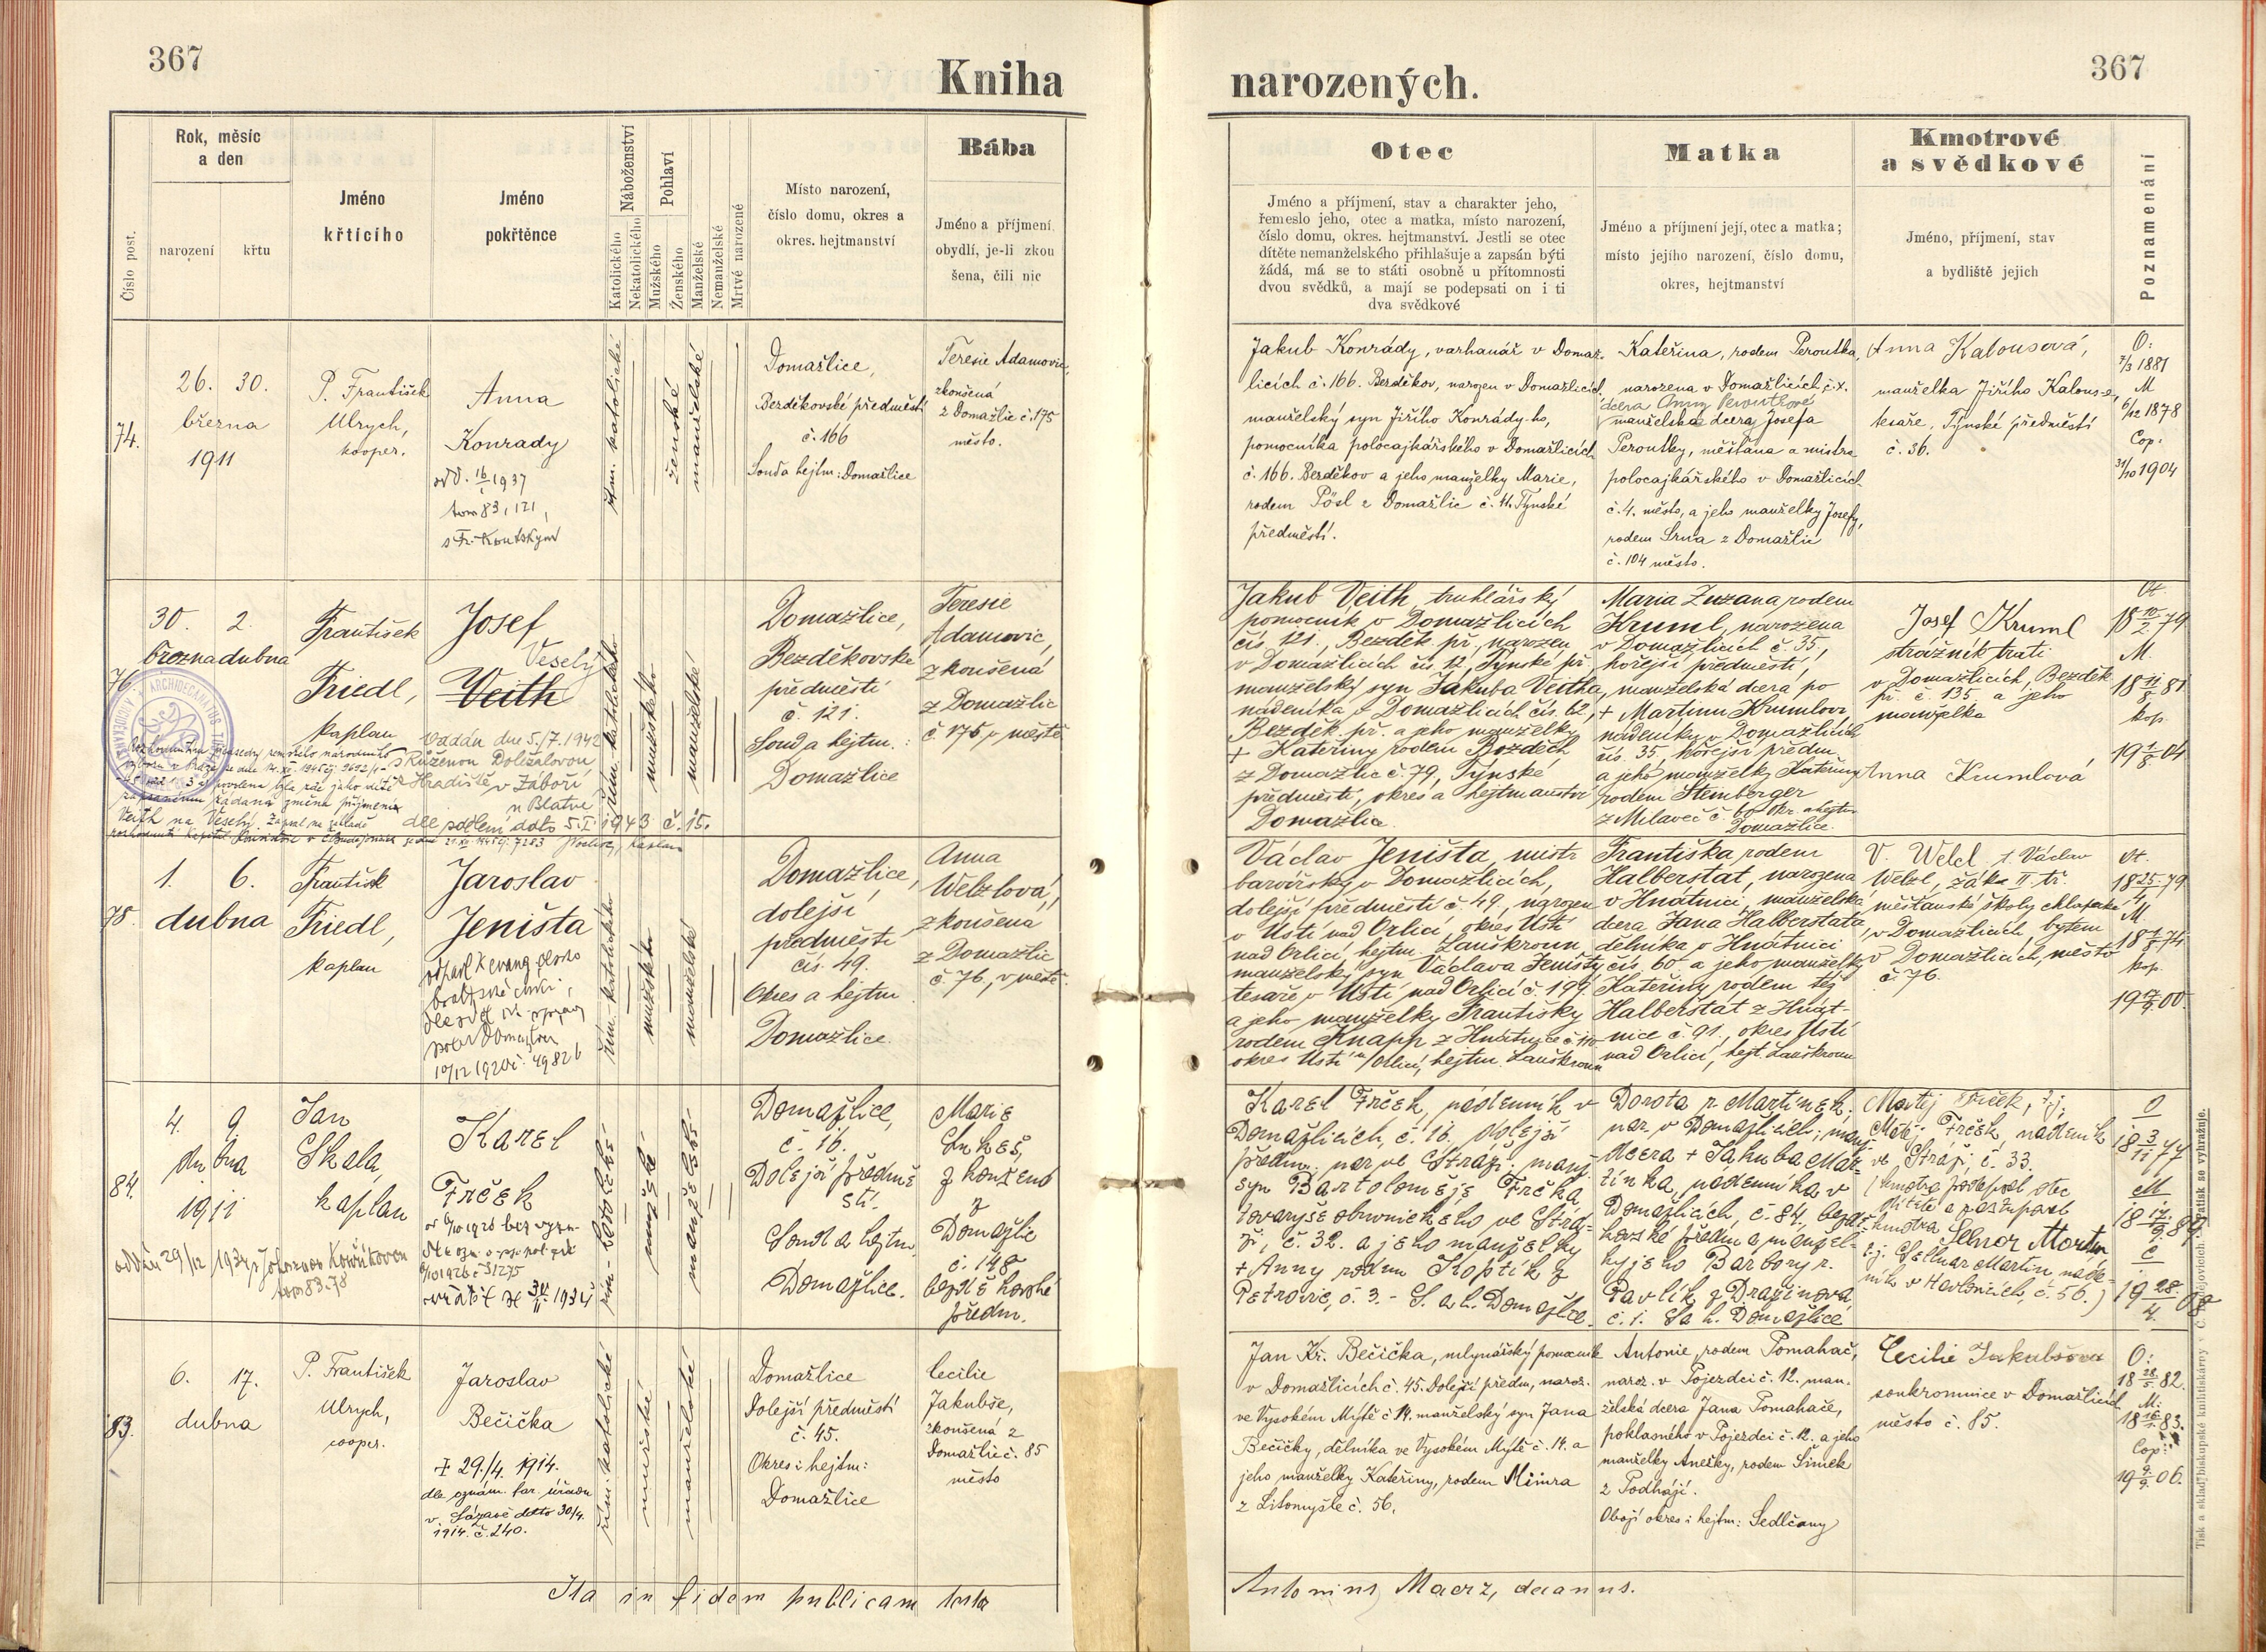 367
Kniha
narozených.
367
Číslo post.
Rok, měsíc
a den
narození
křtu
Jméno
křtícího
Jméno
pokřtěnce
Náboženství
Katolického
Nekatolického
Pohlaví
Mužského
Ženského
Manželské
Nemanželské
Mrtvé narozené
Místo narození,
číslo domu, okres a
okres. hejtmanství
Bába
Jméno a příjmení
obydlí, je-li zkou
šena, čili nic
Otec
Jméno a příjmení, stav a charakter jeho,
řemeslo jeho, otec a matka, místo narození,
číslo domu, okres. hejtmanství. Jestli se otec
dítěte nemanželského přihlašuje a zapsán býti
žádá, má se to státi osobně u přítomnosti
dvou svědků, a mají se podepsati on i ti
dva svědkové
Matka
Jméno a příjmení její, otec a matka;
místo jejího narození, číslo domu,
okres, hejtmanství
Kmotrové
a svědkové
Jméno, příjmení, stav
a bydliště jejich
Poznamenání
74.
26. 30.
března
1911
P. František
Ulrych,
kooper.
Anna
Konrady
odd. 16/1 1937
tom 83, 121,
s Fr. Koutským
řím. katolické
ženské
manželské
Domažlice,
Bezděkovské předměstí
č. 166
Soud a hejtm: Domažlice
Teresie Adamovic,
zkoušená
z Domažlic č. 175
město.
Jakub Konrády, varhanář v Domaž-
licích č. 166. Bezděkov, narozen v Domažlicích,
manželský syn Jiřího Konrády-ho,
pomocníka polocajkářského v Domažlicích
č. 166. Bezděkov a jeho manželky Marie,
rodem Pösl z Domažlic č. 41. Týnské
předměstí.
Kateřina, rodem Peroutka,
narozena v Domažlicích č. 4.
dcera Anny Peroutkové
manželská dcera Josefa
Peroutky, měšťana a mistra
polocajkářského v Domažlicích
č. 4. město, a jeho manželky Josefy,
rodem Srna z Domažlic
č. 104 město.
Anna Kalousová,
manželka Jiřího Kalouse,
tesaře, Týnské předměstí
č. 36.
O:
7/3 1881
M
6/12 1878
Cop:
31/10 1904
76
30. 2.
března dubna
František
Friedl,
kaplan
Josef
Veselý
Veith
Oddán dne 5./7. 1942
s Růženou Doležalovou
z Hradiště v Záboří
u Blatné
dle sdělení ddto 5. I. 1943 č. 15.
Veith na Veselý.
řím. katolického
mužského
manželské
Domažlice,
Bezděkovské
předměstí
č. 121.
Soud a hejtm.:
Domažlice
Teresie
Adamovic,
zkoušená
z Domažlic
č. 175 v městě
Jakub Veith, truhlářský
pomocník v Domažlicích
čís. 121., Bezděk. př., narozen
v Domažlicích čís. 12, Týnské př.
manželský syn Jakuba Veitha,
nádeníka v Domažlicích čís. 62,
Bezděk. př. a jeho manželky
+ Kateřiny rodem Bozděch
z Domažlic č. 79, Týnské
předměstí, okres a hejtmanství
Domažlice.
Maria Zuzana rodem
Kruml, narozena
v Domažlicích č. 35,
hořejší předměstí,
manželská dcera po
+ Martinu Krumlovi
nádeníku v Domažlicích
čís. 35, hořejší předm.
a jeho manželky Kateřiny
rodem Steinberger
z Milaveč č. 60 okr. a hejtm.
Domažlice.
Josef Kruml
strážník trati
v Domažlicích, Bezděk.
př. č. 135 a jeho
manželka
Anna Krumlová
Ot.
18 10/2 79.
M.
18 11/8 81
kop.
19 1/8 04
78.
1. 6.
dubna
František
Friedl,
kaplan
Jaroslav
Jeništa
10/12 1920 č. 49826
řím. katolického
mužského
manželské
Domažlice,
dolejší
předměstí
čís. 49.
Okres a hejtm
Domažlice.
Anna
Welzlová,
zkoušená
z Domažlic
č. 76, v městě.
Václav Jeništa, mistr
barvířský v Domažlicích,
dolejší předměstí č. 49., narozen
v Ústí nad Orlicí, okres Ústí
nad Orlicí, hejtm. Lanškroun
manželský syn Václava Jeništy,
tesaře v Ústí nad Orlicí č. 199.
a jeho manželky Františky
rodem Knapp z Hnátnice č. 110
okres Ústí n/Orlicí, hejtm. Lanškroun
Františka rodem
Halberstat, narozena
v Hnátnici, manželská
dcera Jana Halberstata,
dělníka v Hnátnici
čís. 60 a jeho manželky
Kateřiny rodem též
Halberštát z Hnát-
nice č. 91., okres Ústí
nad Orlicí, hejt. Lanškroun
V. Welzl, t. Václav
Welzl, žák II. tř.
měšťanské školy chlapecké
v Domažlicích bytem
v Domažlicích, město
č. 76.
Ot.
18 25/4 79.
M.
18 1/8 74
kop.
19 17/9 00.
84.
4. 9.
dubna
1911
Jan
Skala,
kaplan
Karel
Frček
řím.-katolické
mužské
manželské
Domažlice,
č. 16.
Dolejší předmě-
stí.
Soud a hejtm.
Domažlice.
Marie
Lukeš,
zkoušená
z
Domažlic
č. 148
bezděkovské
předm.
Karel Frček, nádenník v
Domažlicích, č. 16. dolejší
předm.; nar. ve Stráži; manž.
syn Bartoloměje Frčka,
tovaryše obuvnického ve Strá-
ži, č. 32. a jeho manželky
+ Anny rodem Koptík z
Petrovic, č. 3. - S. a h. Domažlice.
Dorota r. Martinek;
nar. v Domažlicích; manž.
dcera + Jakuba Mar-
tínka, nádenníka v
Domažlicích, č. 84, bezdě-
kovské předm. a manžel-
ky jeho Barbory r.
Pavlík z Dražinova,
č. 1. S. a h. Domažlice
Matěj Frček, t.j.
Matěj Frček, nádenník
ve Stráži, č. 33.
Selnar Martin,
t.j. Selnar Martin, náde-
ník v Havlovicích, č. 56.)
O
18 3/11 77
M
18 17/9 89
C
19 28/4 08
83.
6. 17.
dubna
P. František
Ulrych,
cooper.
Jaroslav
Bečička
+ 29./4. 1914.
dle oznám. far. úřadu
v Sázavě ddto 30/4.
1914. č. 240.
řím. katolické
mužské
manželské
Domažlice
Dolejší předměstí
č. 45.
Okres i hejtm:
Domažlice
Cecilie
Jakubše,
zkoušená z
Domažlic č. 85
město
Jan Kř. Bečička, mlynářský pomocník
v Domažlicích č. 45. Dolejší předm., naroz.
ve Vysokém Mýtě č. 14. manželský syn Jana
Bečičky, dělníka ve Vysokém Mýtě č. 14. a
jeho manželky Kateřiny, rodem Mimra
z Litomyšle č. 56.
Antonie, rodem Pomahač,
naroz. v Pojezdci č. 12. man-
želská dcera Jana Pomahače,
poklasného v Pojezdci č. 12. a jeho
manželky Anežky, rodem Šimek
z Podhájí.
Obojí okres i hejtm: Sedlčany
Cecilie Jakubšova
soukromnice v Domažlicích
město č. 85.
O:
18 28/5 82.
M:
18 16/1 83.
Cop:
19 9/9 06.
Ita in fidem publicam testor
Antonius Maerz, decanus.